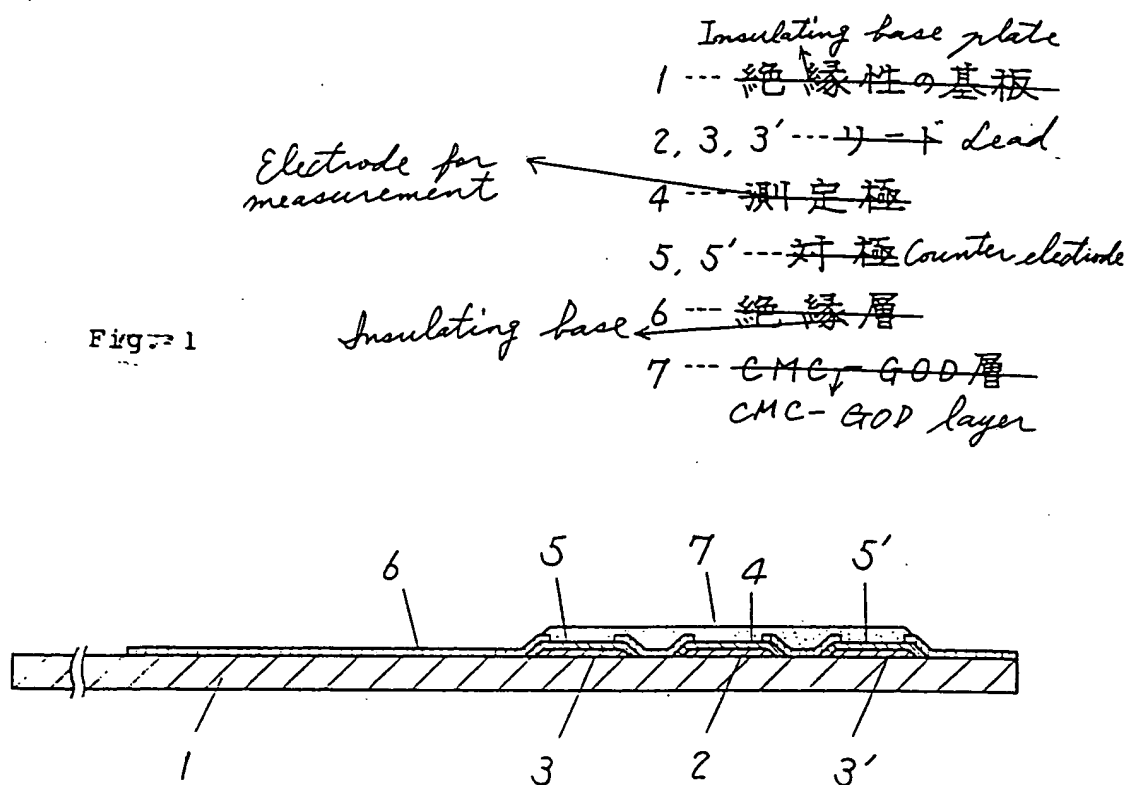 Insulating base plate
1 --- 絶縁性の基板
2, 3, 3′ --- リード Lead
Electrode for measurement
4 --- 測定極
5, 5′ --- 対極 Counter electrode
Insulating base
6 --- 絶縁層
Fig. 1
7 --- CMC-GOD層
CMC-GOD layer
6 5 7 4 5′
1 3 2 3′